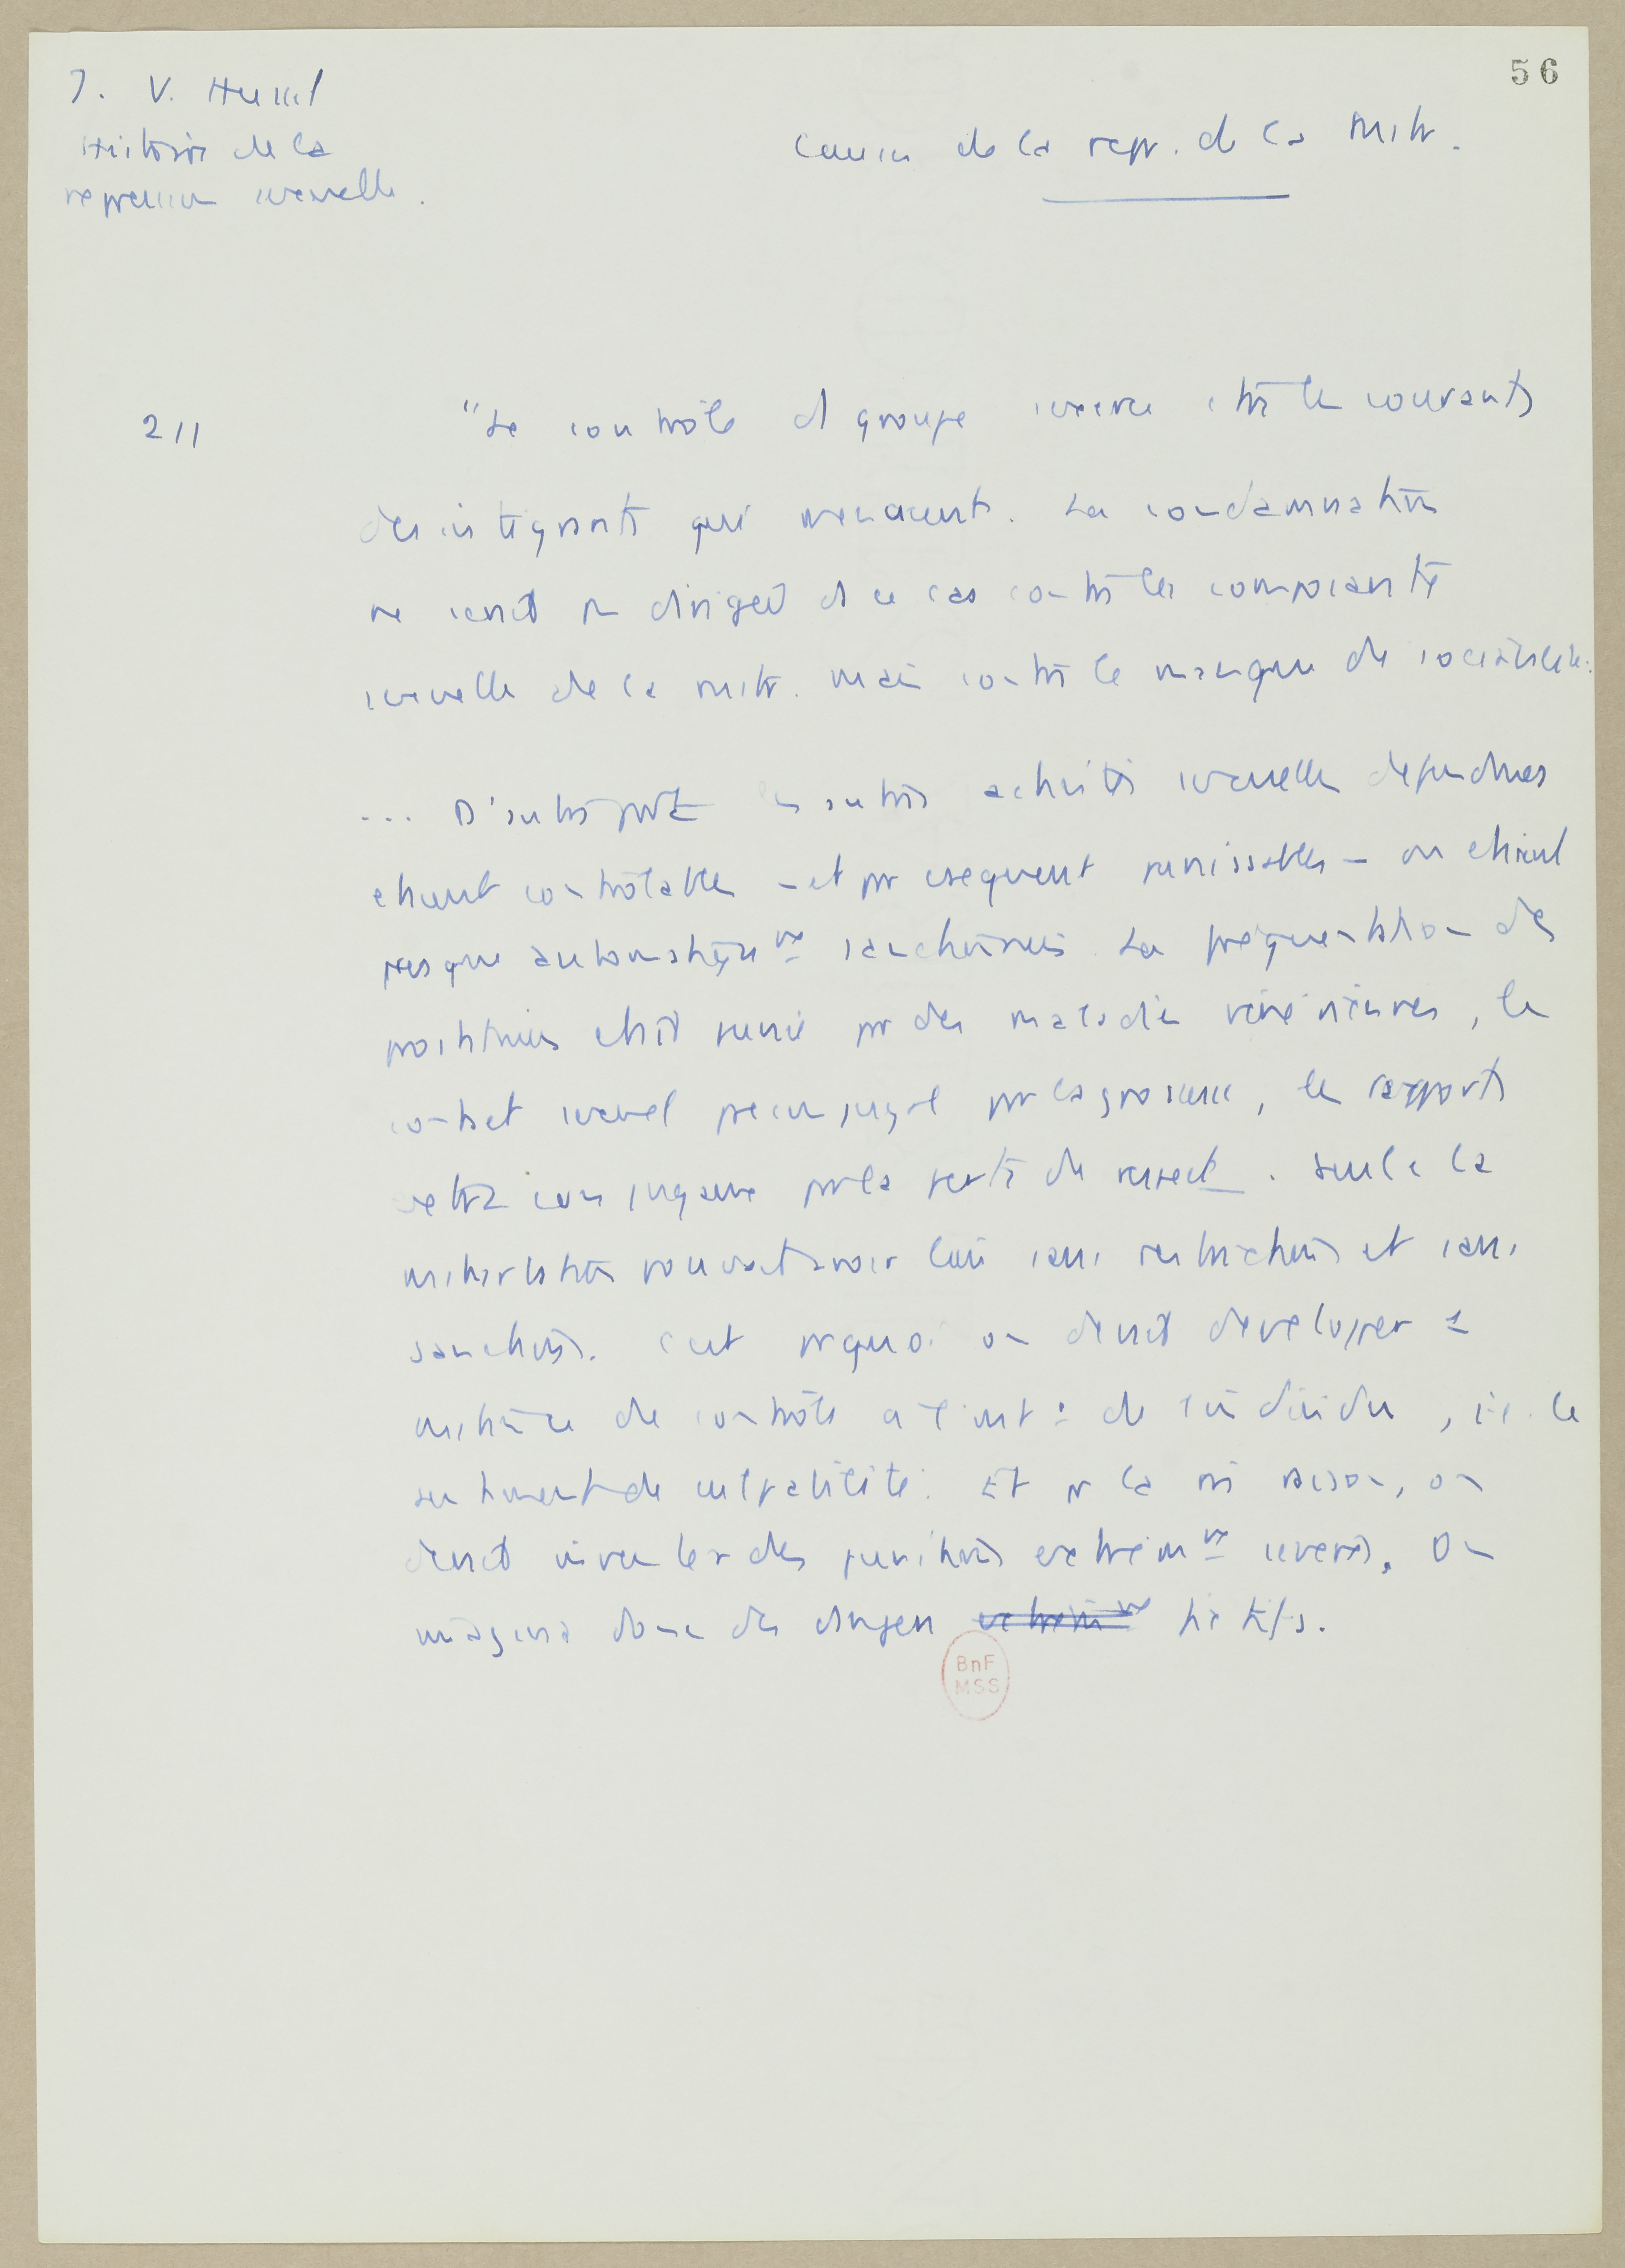 J. V. Hussel
Histoire de la
repression sexuelle.
56
Causes de la repr. de la mstr.
211
"Le contrôle du groupe s'exerce ctre les courants
desintegrants qui menacent. La condamnation
ne serait pas dirigée ds ce cas contre les composantes
sexuelles de la mstr. mais contre le manque de sociabilité.
... D'autre part les autres activités sexuelles defendues
etaient contrôlables - et par csequent punissables - ou etaient
presque automatiquemt sanctionnées. La fréquentation des
prostituées était punie par des maladies vénériennes, le
contact sexuel preconjugal par la grossesse, les rapports
extra conjugaux par la perte du respect. Seule la
masturbation pouvait avoir lieu sans restrictions et sans
sanctions. C'est pquoi on devait developper 1
instance de contrôle a l'intr de l'individu, i.e. le
sentiment de culpabilité. Et pr la m raison, on
devait inventer des punitions extrememt severes. On
imagina donc des dangers extrememt fictifs.
BnF
MSS